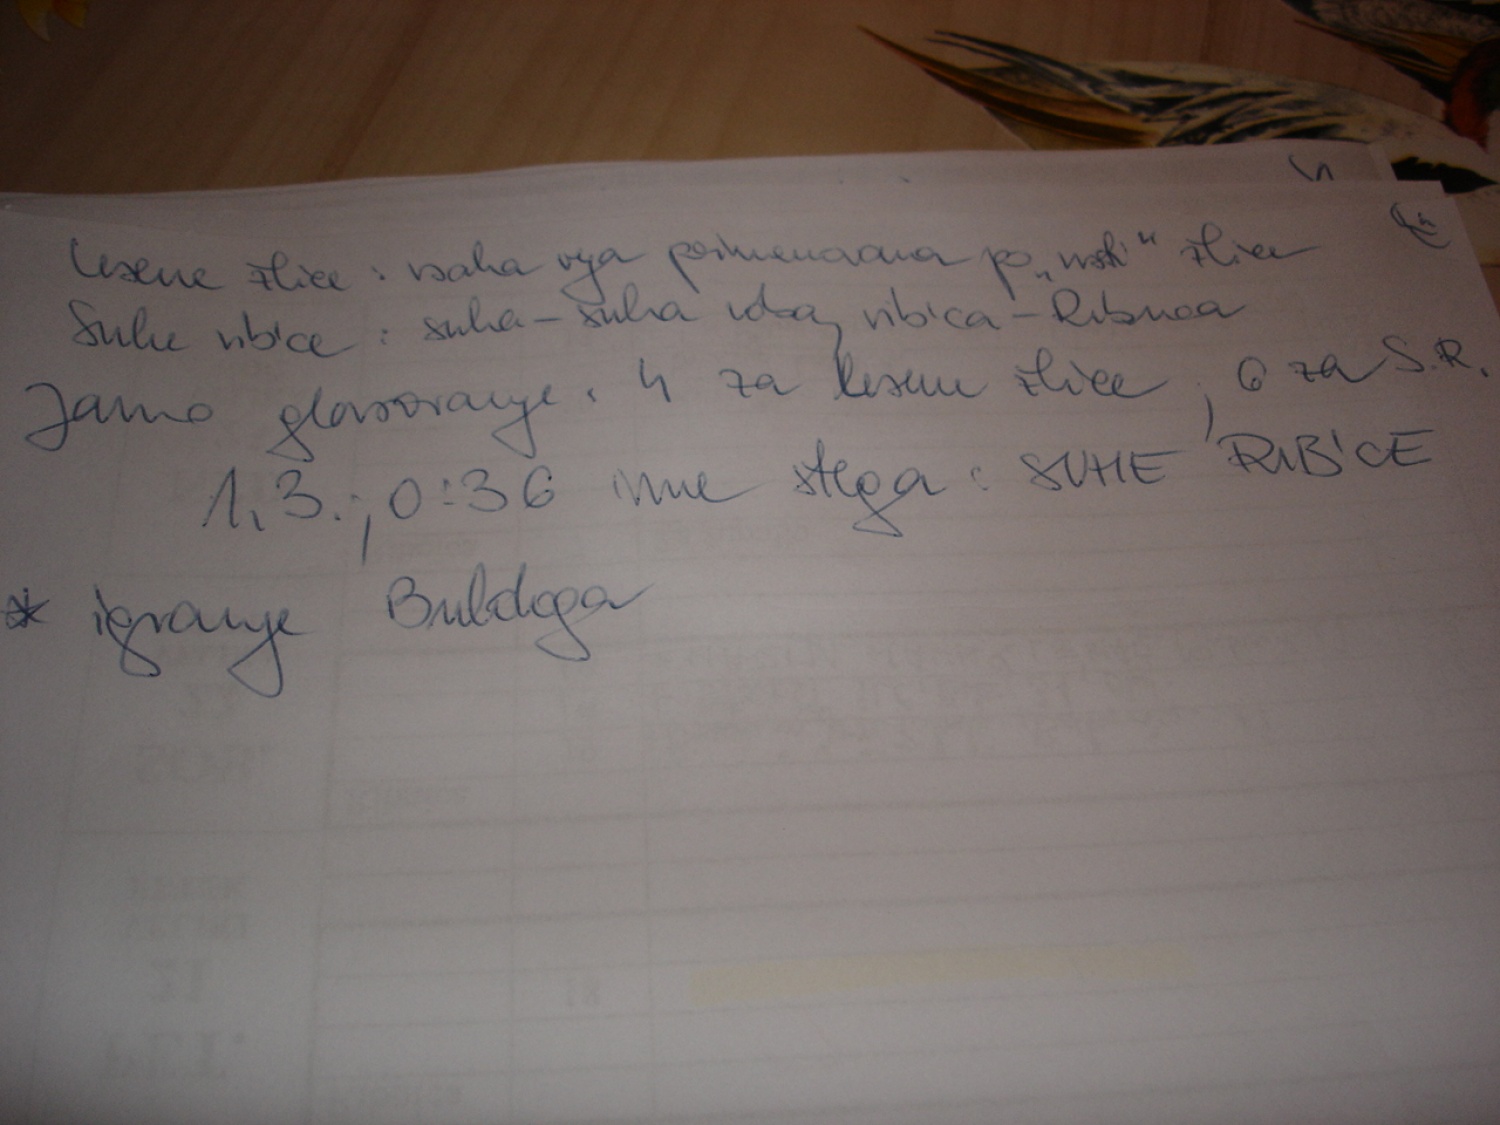 Lesene žlice : vsaka vrsta poimenovana po "vrsti" žlice
Suhe ribice : suha - suha roba, ribica - Ribnica
Javno glasovanje : 4 za lesene žlice ; 6 za S.R.
1.3. ; 0:36 ime stega : SUHE RIBICE
* igranje Buldoga